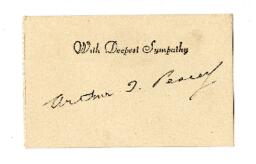 With Deepest Sympathy
Arthur J. Peacey